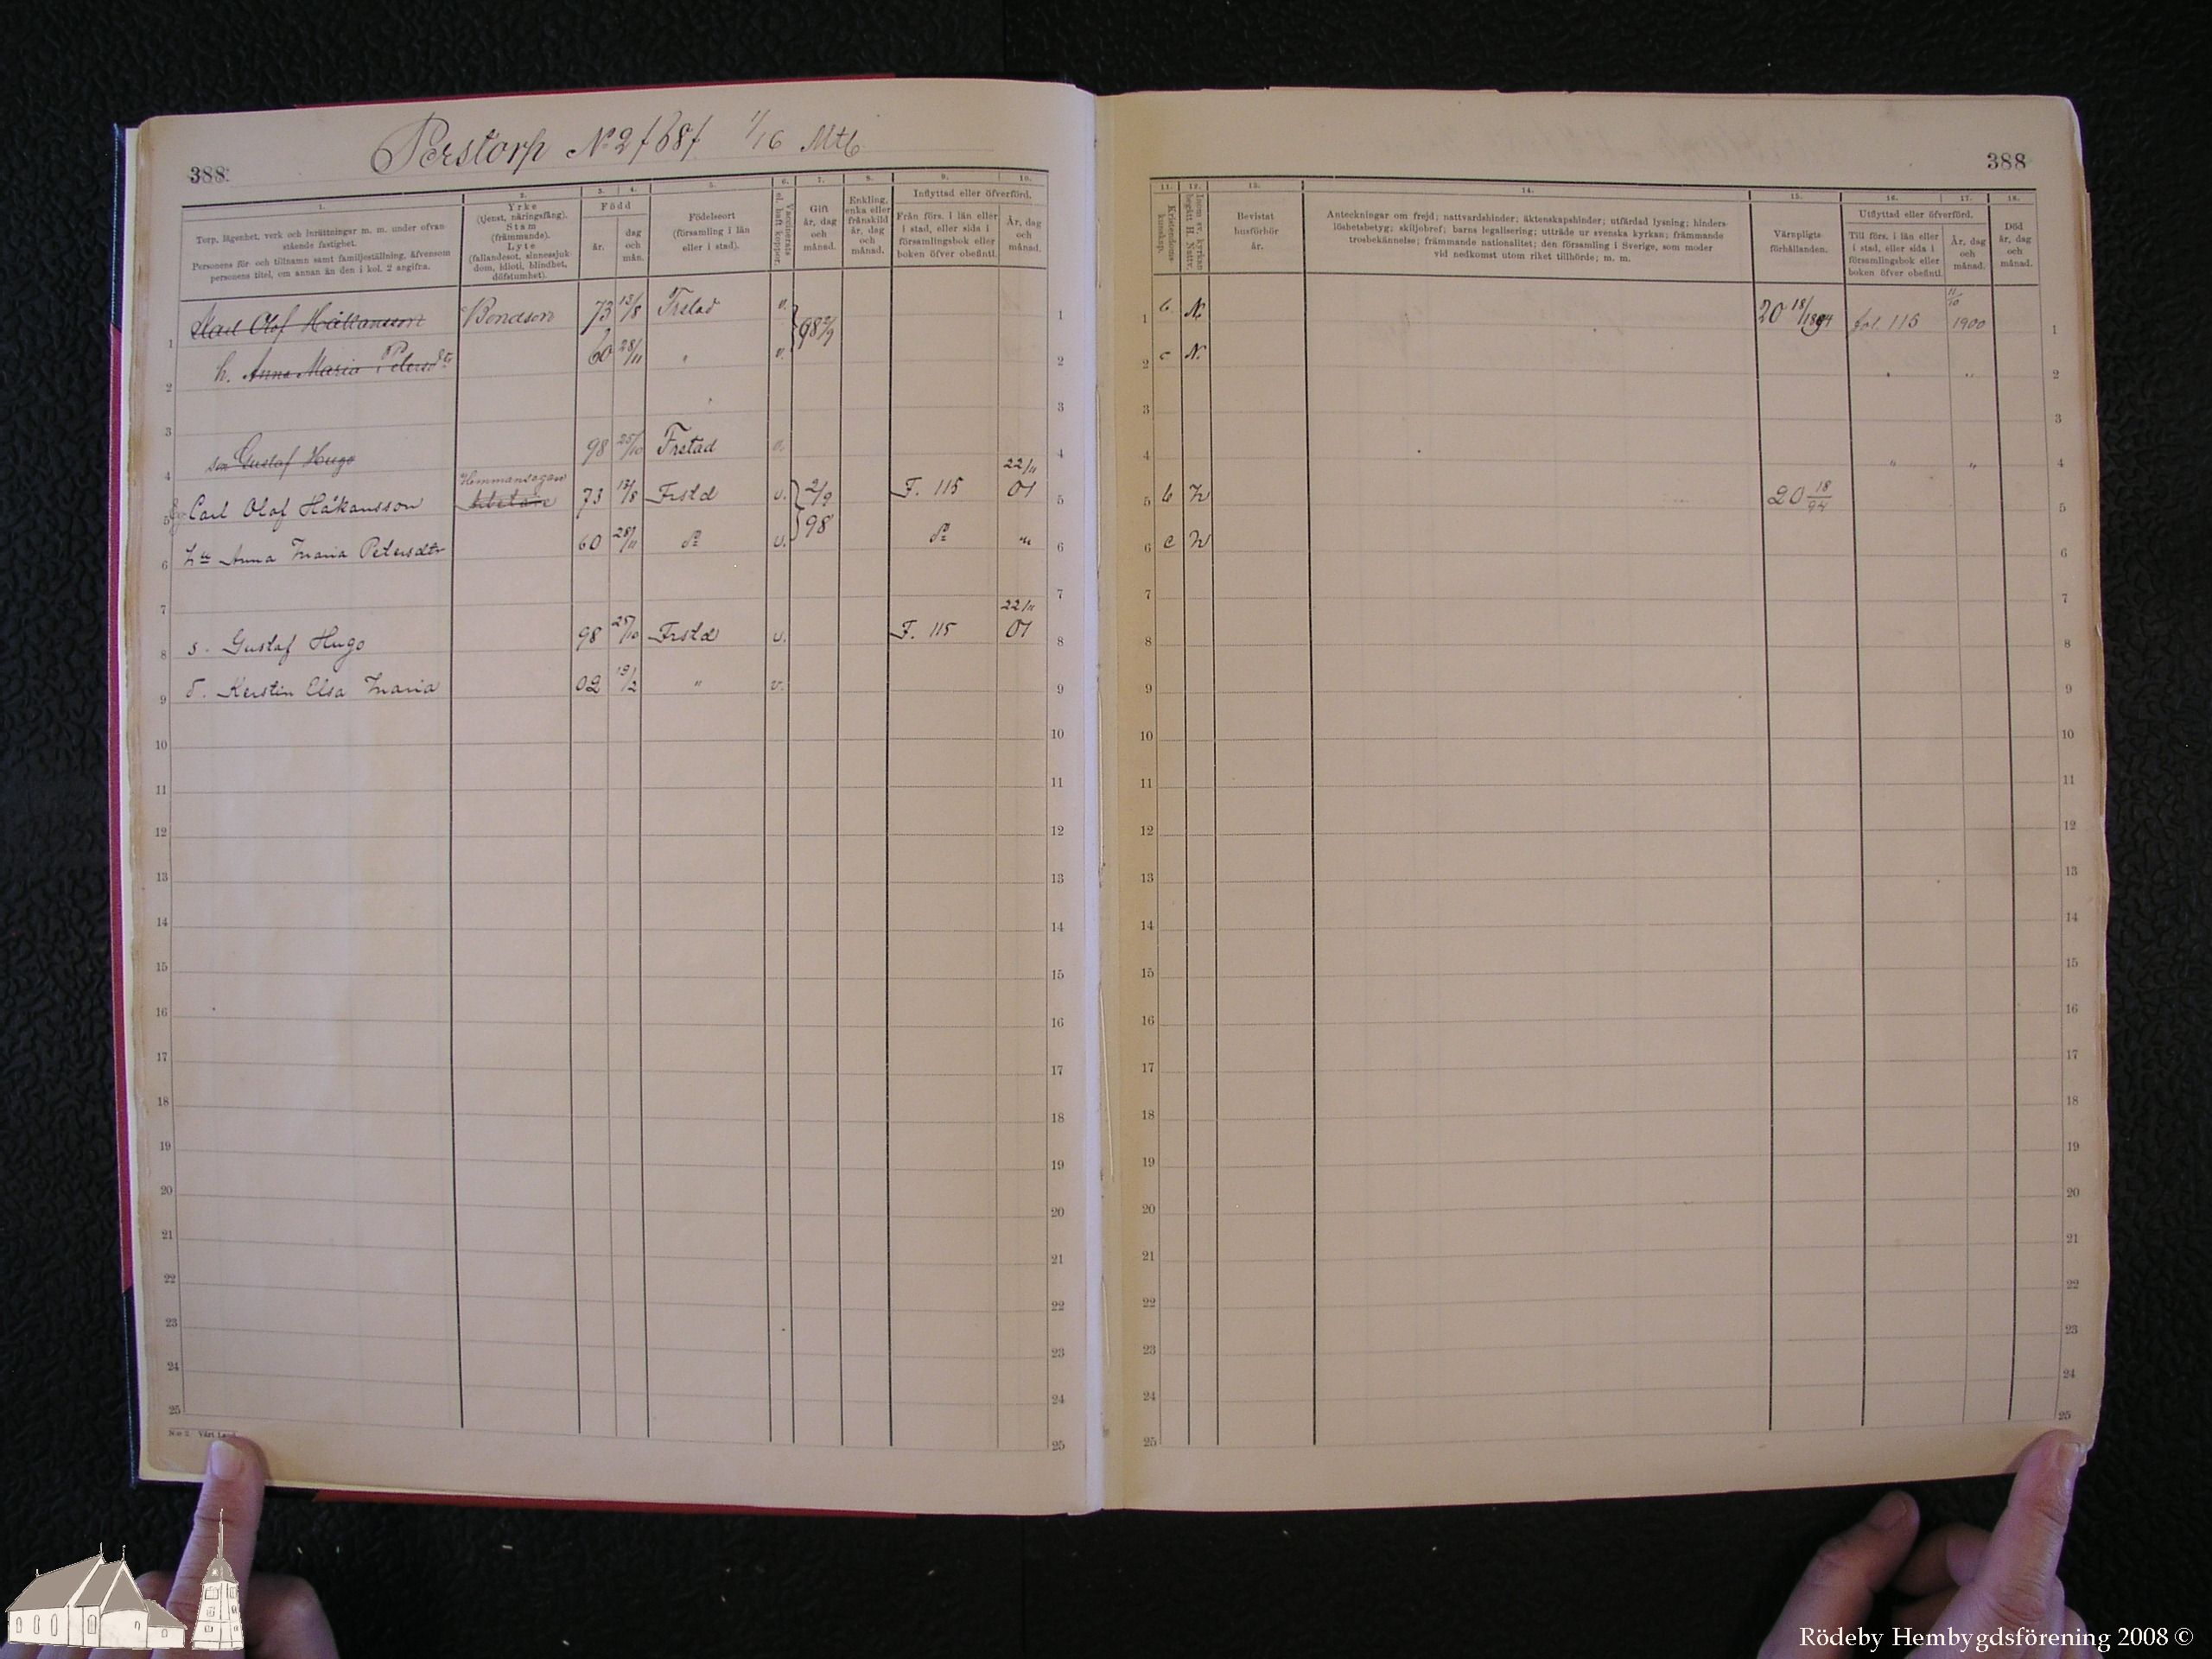 Perstorp No 2 1/16 Mtl
388.
1.
Torp, lägenhet, verk och inrättningar m. m. under ofvan
stående fastighet.
Personens för- och tillnamn samt familjeställning, äfvensom
personens titel, om annan än den i kol. 2 angifra.
2.
Yrke
(tjenst, näringsfång).
Stam
(främmande).
Lyte
(fallandesot, sinnessjuk-
dom, idioti, blindhet,
döfstumhet).
3. 4.
Född
år.
dag
och
mån.
5.
Födelseort
(församling i län
eller i stad).
6.
Vaccinerats
el. haft koppor.
7.
Gift
år, dag
och
månad.
8.
Enkling,
enka eller
frånskild
år, dag
och
månad.
9. 10.
Inflyttad eller öfverförd.
Från förs. i län eller
i stad, eller sida i
församlingsbok eller
boken öfver obefintl.
År, dag
och
månad.
1 Karl Olof Håkansson Bondson 73 13/8 Frstad v. 98 2/9 1
2 h. Anna Maria Petersdtr 60 28/11 " v. 2
3 3
4 son Gustaf Hugo 98 25/10 Frstad v. 4
5 Carl Olof Håkansson Hemmansegare 73 13/8 Frstd v. 2/9 98 F. 115 22/11 01 5
6 Hu Anna Maria Petersdtr 60 28/11 do v. do " 6
7 7
8 s. Gustaf Hugo 98 25/10 Frstd v. F. 115 22/11 01 8
9 d. Kerstin Elsa Maria 02 19/2 " v. 9
10 10
11 11
12 12
13 13
14 14
15 15
16 16
17 17
18 18
19 19
20 20
21 21
22 22
23 23
24 24
25 25
388
11.
Kristendoms-
kunskap.
12.
Inom sv. kyrkan
begått H. Nattv.
13.
Bevistat
husförhör
år.
14.
Anteckningar om frejd; nattvardshinder; äktenskapshinder; utfärdad lysning; hinders-
löshetsbetyg; skiljobref; barns legalisering; utträde ur svenska kyrkan; främmande
trosbekännelse; främmande nationalitet; den församling i Sverige, som moder
vid nedkomst utom riket tillhörde; m. m.
15.
Värnpligts-
förhållanden.
16. 17.
Utflyttad eller öfverförd.
Till förs. i län eller
i stad, eller sida i
församlingsbok eller
boken öfver obefintl.
År, dag
och
månad.
18.
Död
år, dag
och
månad.
1 b N. 20 18/1894 fol. 115 11/10 1900 1
2 c N. " " 2
3 3
4 " " 4
5 b N 20 18/94 5
6 c N 6
7 7
8 8
9 9
10 10
11 11
12 12
13 13
14 14
15 15
16 16
17 17
18 18
19 19
20 20
21 21
22 22
23 23
24 24
25 25
Rödeby Hembygdsförening 2008 ©